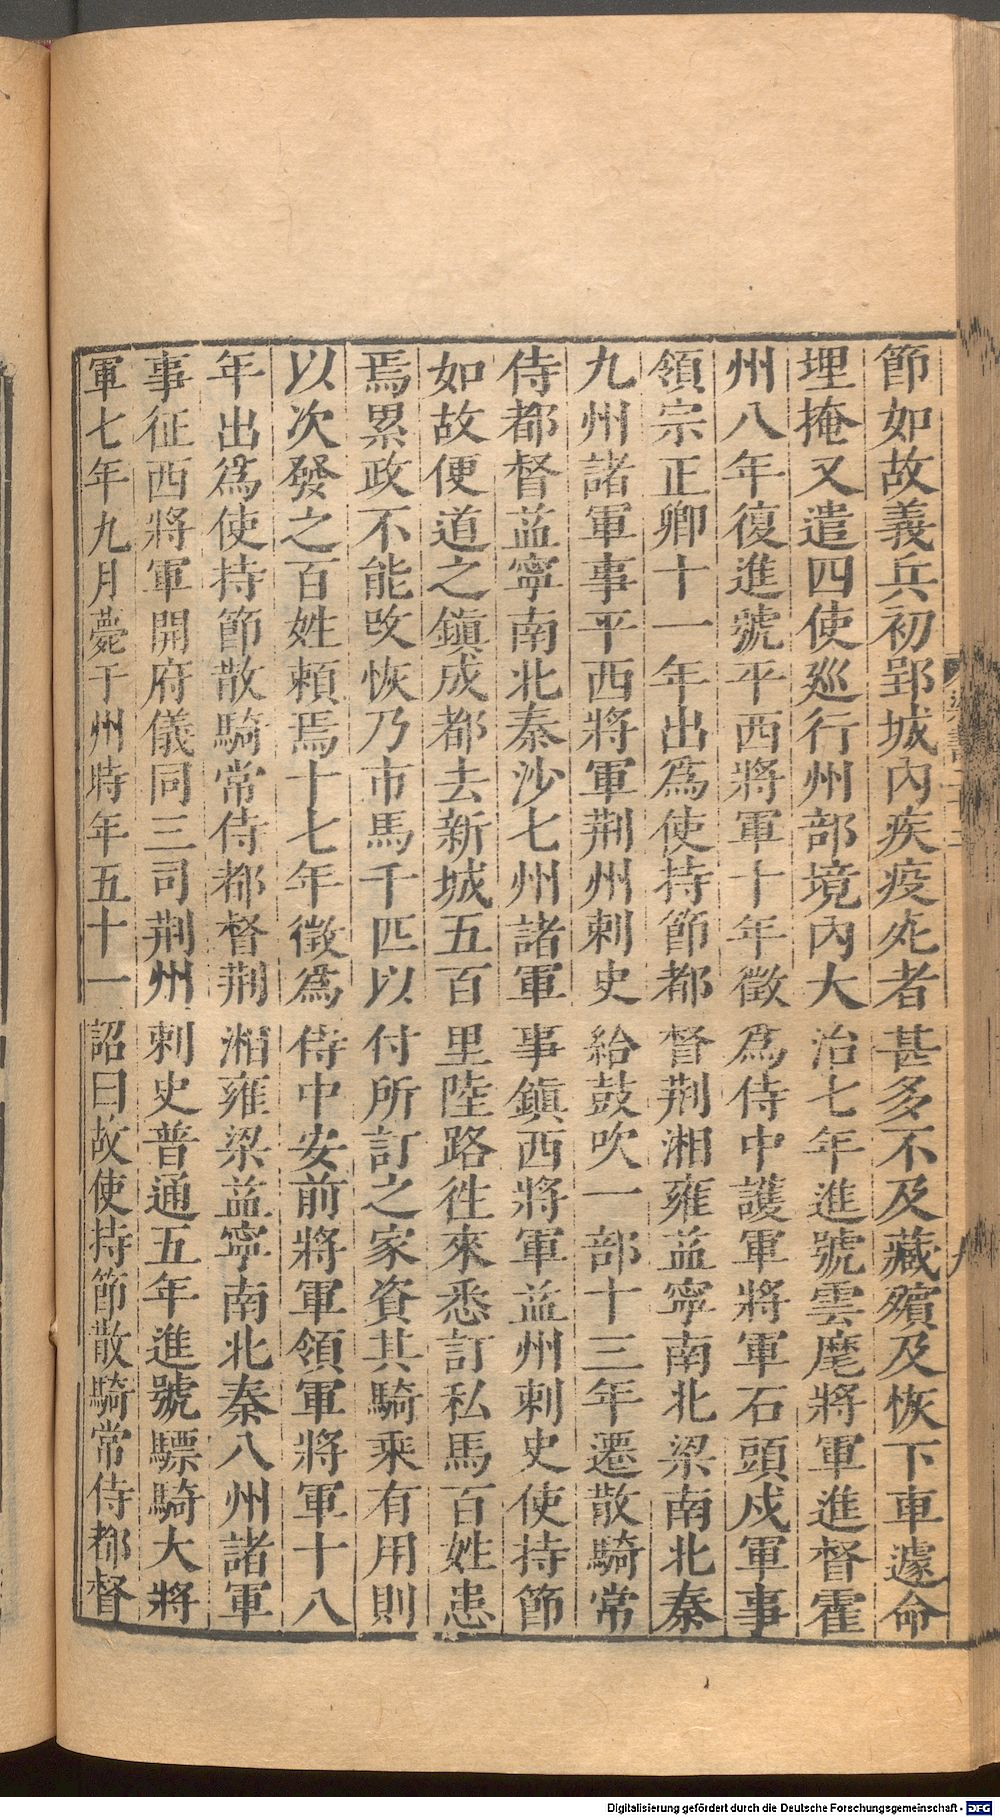 節如故義兵初郢城內疾疫死者甚多不及藏殯及恢下車遽命
埋掩又遣四使廵行州部境內大治七年進號雲麾將軍進督霍
州八年復進號平西將軍十年徵爲侍中護軍將軍石頭戍軍事
領宗正卿十一年出爲使持節都督荆湘雍益寧南北梁南北秦
九州諸軍事平西將軍荆州刺史給鼓吹一部十三年遷散騎常
侍都督益寧南北秦沙七州諸軍事鎮西將軍益州刺史使持節
如故便道之鎮成都去新城五百里陸路徃來悉訂私馬百姓患
焉累政不能改恢乃市馬千匹以付所訂之家資其騎乘有用則
以次發之百姓賴焉十七年徵爲侍中安前將軍領軍將軍十八
年出爲使持節散騎常侍都督荆湘雍梁益寧南北秦八州諸軍
事征西將軍開府儀同三司荆州刺史普通五年進號驃騎大將
軍七年九月薨于州時年五十一詔曰故使持節散騎常侍都督
Digitalisierung gefördert durch die Deutsche Forschungsgemeinschaft - DFG